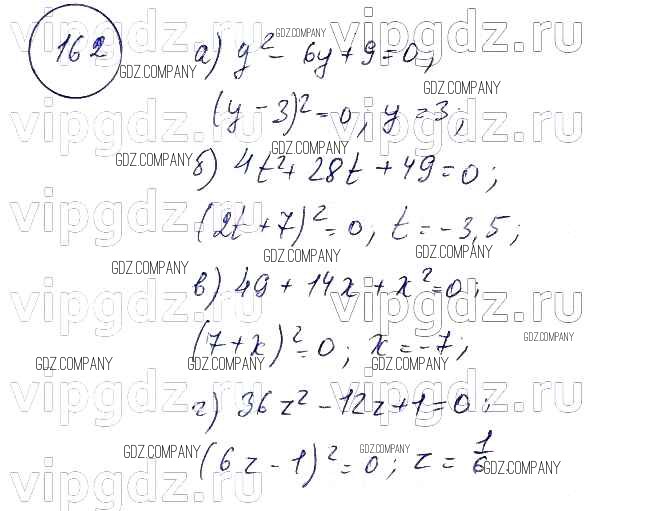 162
а) y² - 6y + 9 = 0;
(y - 3)² = 0, y = 3;
б) 4t² + 28t + 49 = 0;
(2t + 7)² = 0, t = -3,5;
в) 49 + 14x + x² = 0;
(7 + x)² = 0; x = -7;
г) 36z² - 12z + 1 = 0;
(6z - 1)² = 0; z = 1/6
vipgdz.ru vipgdz.ru
GDZ.COMPANY
GDZ.COMPANY
GDZ.COMPANY
vipgdz.ru vipgdz.ru
GDZ.COMPANY
GDZ.COMPANY
vipgdz.ru vipgdz.ru
GDZ.COMPANY
GDZ.COMPANY
GDZ.COMPANY
vipgdz.ru vipgdz.ru
GDZ.COMPANY
GDZ.COMPANY
GDZ.COMPANY
GDZ.COMPANY
vipgdz.ru vipgdz.ru
GDZ.COMPANY
GDZ.COMPANY
GDZ.COMPANY
vipgdz.ru vipgdz.ru